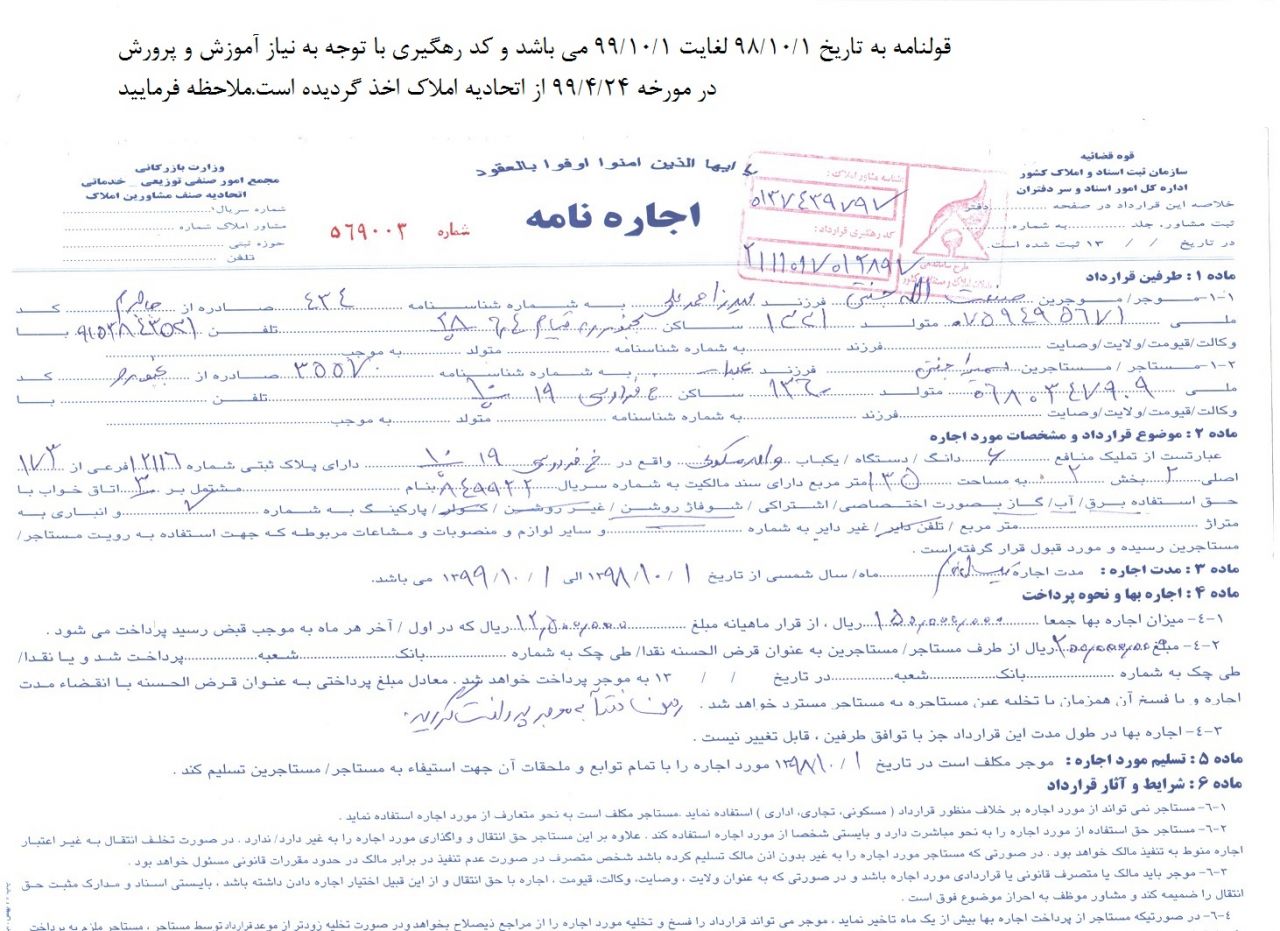 قولنامه به تاریخ ۹۸/۱۰/۱ لغایت ۹۹/۱۰/۱ می باشد و کد رهگیری با توجه به نیاز آموزش و پرورش
در مورخه ۹۹/۴/۲۴ از اتحادیه املاک اخذ گردیده است.ملاحظه فرمایید
یا ایها الذین امنوا اوفوا بالعقود
اجاره نامه
شماره ۵۶۹۰۰۳
قوه قضائیه
سازمان ثبت اسناد و املاک کشور
اداره کل امور اسناد و سر دفتران
خلاصه این قرارداد در صفحه ........ دفتر
ثبت مشاور، جلد ........ به شماره ........
در تاریخ / / ۱۳ ثبت شده است.
شناسه مشاور املاک :
۵۱۳۷۴۳۹۷۹۷
کد رهگیری قرارداد :
وزارت بازرگانی
مجمع امور صنفی توزیعی _ خدماتی
اتحادیه صنف مشاورین املاک
شماره سریال ........
مشاور املاک شماره ........
حوزه ثبتی ........
تلفن ........
ماده ۱: طرفین قرارداد
۱-۱- موجر/ موجرین ........ فرزند ........ به شماره شناسنامه ۴۳۴ صادره از ........ کد
ملی ........ متولد ........ ساکن ........ تلفن ........ با
وکالت/قیومت/ولایت/وصایت ........ فرزند ........ به شماره شناسنامه ........ متولد ........ به موجب ........
۱-۲- مستاجر / مستاجرین ........ فرزند ........ به شماره شناسنامه ........ صادره از بجنورد کد
ملی ........ متولد ۱۳۶۰ ساکن خ فردوسی ۱۹ ........ تلفن ........ با
وکالت/قیومت/ولایت/وصایت ........ فرزند ........ به شماره شناسنامه ........ متولد ........ به موجب ........
ماده ۲: موضوع قرارداد و مشخصات مورد اجاره
عبارتست از تملیک منافع ۶ دانگ / دستگاه / یکباب واحد مسکونی واقع در خ فردوسی ۱۹ ........ دارای پلاک ثبتی شماره ۱۲۱۱۶ فرعی از ۱۷۳
اصلی ۲ بخش ۲ به مساحت ۱۳۵ متر مربع دارای سند مالکیت به شماره سریال ۸۴۹۹۲۲ بنام ........ مشتمل بر ۳ اتاق خواب با
حق استفاده برق/ آب/ گاز بصورت اختصاصی/ اشتراکی / شوفاژ روشن / غیر روشن / کولر / پارکینگ به شماره ........ و انباری به
متراژ ........ متر مربع / تلفن دایر / غیر دایر به شماره ........ و سایر لوازم و منصوبات و مشاعات مربوطه که جهت استفاده به رویت مستاجر/
مستاجرین رسیده و مورد قبول قرار گرفته است .
ماده ۳ : مدت اجاره : مدت اجاره ........ ماه/ سال شمسی از تاریخ ۱۳۹۸/۱۰/۱ الی ۱۳۹۹/۱۰/۱ می باشد.
ماده ۴ : اجاره بها و نحوه پرداخت
۴-۱- میزان اجاره بها جمعا ۱۵۰,۰۰۰,۰۰۰ ریال ، از قرار ماهیانه مبلغ ۱۲,۵۰۰,۰۰۰ ریال که در اول / آخر هر ماه به موجب قبض رسید پرداخت می شود .
۴-۲- مبلغ ۲۰۰,۰۰۰,۰۰۰ ریال از طرف مستاجر/ مستاجرین به عنوان قرض الحسنه نقدا/ طی چک به شماره ........ بانک ........ شعبه ........ پرداخت شد و یا نقدا/
طی چک به شماره ........ بانک ........ شعبه ........ در تاریخ / / ۱۳ به موجر پرداخت خواهد شد . معادل مبلغ پرداختی به عنوان قرض الحسنه با انقضاء مدت
اجاره و یا فسخ آن همزمان با تخلیه عین مستاجره به مستاجر مسترد خواهد شد . رهن نقداً به موجر پرداخت گردید.
۴-۳- اجاره بها در طول مدت این قرارداد جز با توافق طرفین ، قابل تغییر نیست .
ماده ۵ : تسلیم مورد اجاره : موجر مکلف است در تاریخ ۱۳۹۸/۱۰/۱ مورد اجاره را با تمام توابع و ملحقات آن جهت استیفاء به مستاجر/ مستاجرین تسلیم کند .
ماده ۶ : شرایط و آثار قرارداد
۶-۱- مستاجر نمی تواند از مورد اجاره بر خلاف منظور قرارداد ( مسکونی، تجاری، اداری ) استفاده نماید .مستاجر مکلف است به نحو متعارف از مورد اجاره استفاده نماید .
۶-۲- مستاجر حق استفاده از مورد اجاره را به نحو مباشرت دارد و بایستی شخصا از مورد اجاره استفاده کند . علاوه بر این مستاجر حق انتقال و واگذاری مورد اجاره را به غیر دارد/ ندارد . در صورت تخلف انتقال به غیر اعتبار
اجاره منوط به تنفیذ مالک خواهد بود . در صورتی که مستاجر مورد اجاره را به غیر بدون اذن مالک تسلیم کرده باشد شخص متصرف در صورت عدم تنفیذ در برابر مالک در حدود مقررات قانونی مسئول خواهد بود .
۶-۳- موجر باید مالک یا متصرف قانونی یا قراردادی مورد اجاره باشد و در صورتی که به عنوان ولایت ، وصایت، وکالت، قیومت ، اجاره با حق انتقال و از این قبیل اختیار اجاره دادن داشته باشد ، بایستی اسناد و مدارک مثبت حق
انتقال را ضمیمه کند و مشاور موظف به احراز موضوع فوق است .
۶-۴- در صورتیکه مستاجر از پرداخت اجاره بها بیش از یک ماه تاخیر نماید ، موجر می تواند قرارداد را فسخ و تخلیه مورد اجاره را از مراجع ذیصلاح بخواهد ودر صورت تخلیه زودتر از موعد قرارداد توسط مستاجر ، مستاجر ملزم به پرداخت